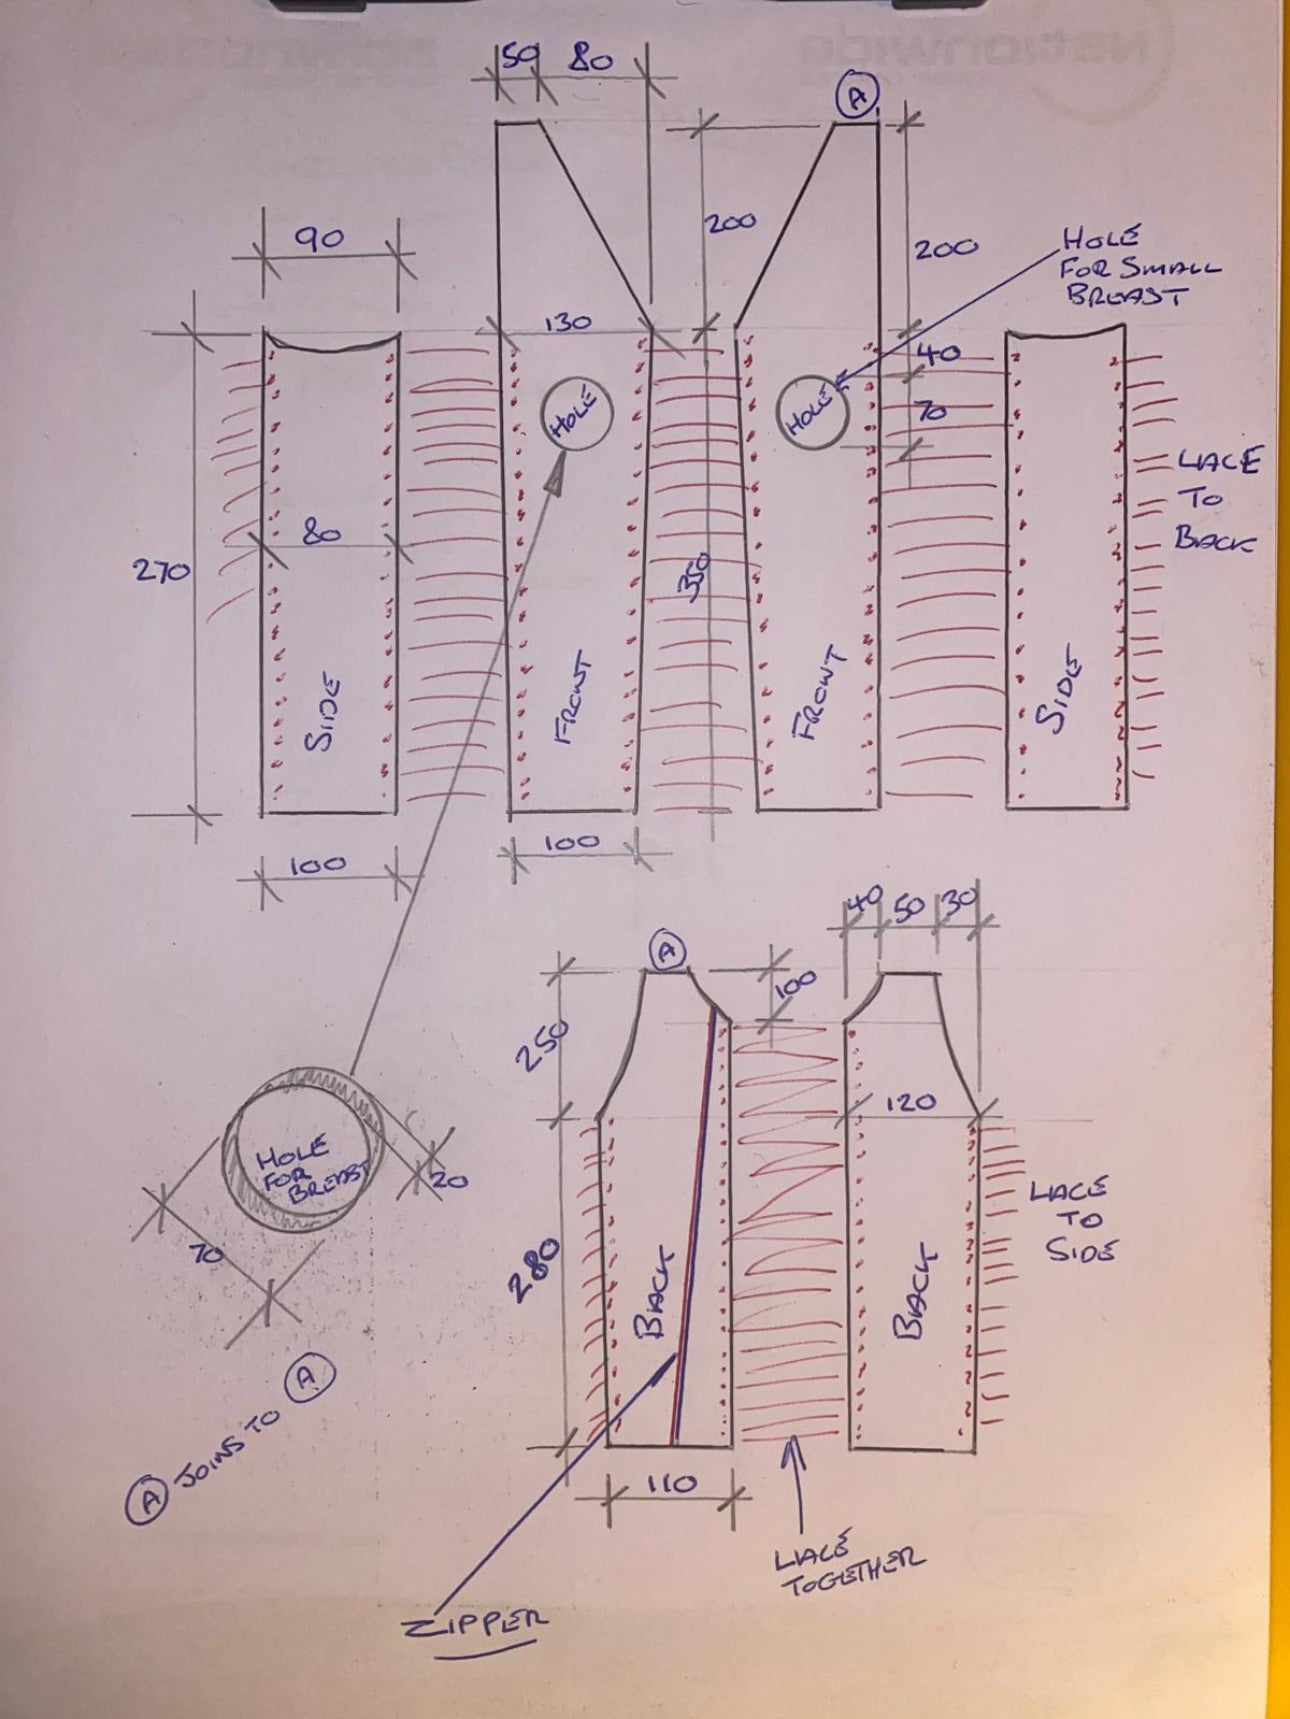 50 80
A
90
200
200
HOLE
FOR SMALL
BREAST
130
40
HOLE
HOLE
70
LACE
TO
BACK
80
270
350
SIDE
FRONT
FRONT
SIDE
100
100
40 50 30
A
100
250
120
HOLE
FOR
BREAST
20
70
LACE
TO
SIDE
280
BACK
BACK
A JOINS TO A
110
LACE
TOGETHER
ZIPPER